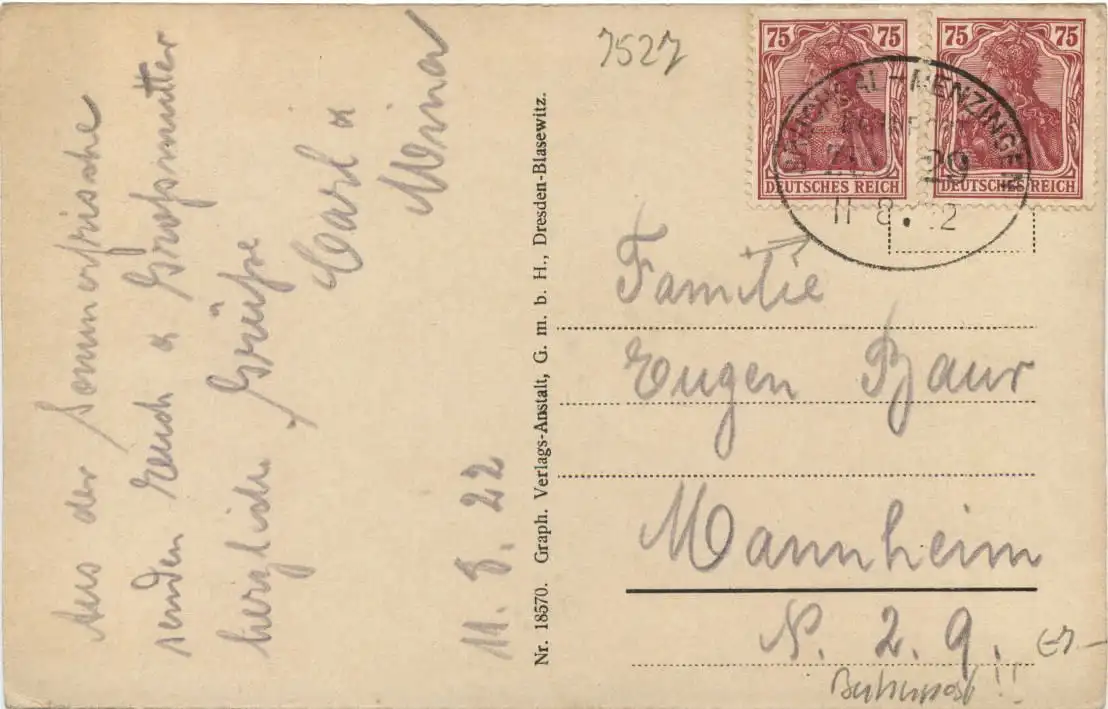 Aus der Sommerfrische
senden Euch u Großmutter
herzliche Grüße
Carl u
Mina
11. 8. 22
Nr. 18570. Graph. Verlags-Anstalt, G. m. b. H., Dresden-Blasewitz.
7527
75 75
DEUTSCHES REICH
75 75
DEUTSCHES REICH
BRUCHSAL-MENZINGEN
BAHNPOST
ZUG 29
11 8 22
Familie
Eugen Baur
Mannheim
N. 2. 9.
Bahnpost !!